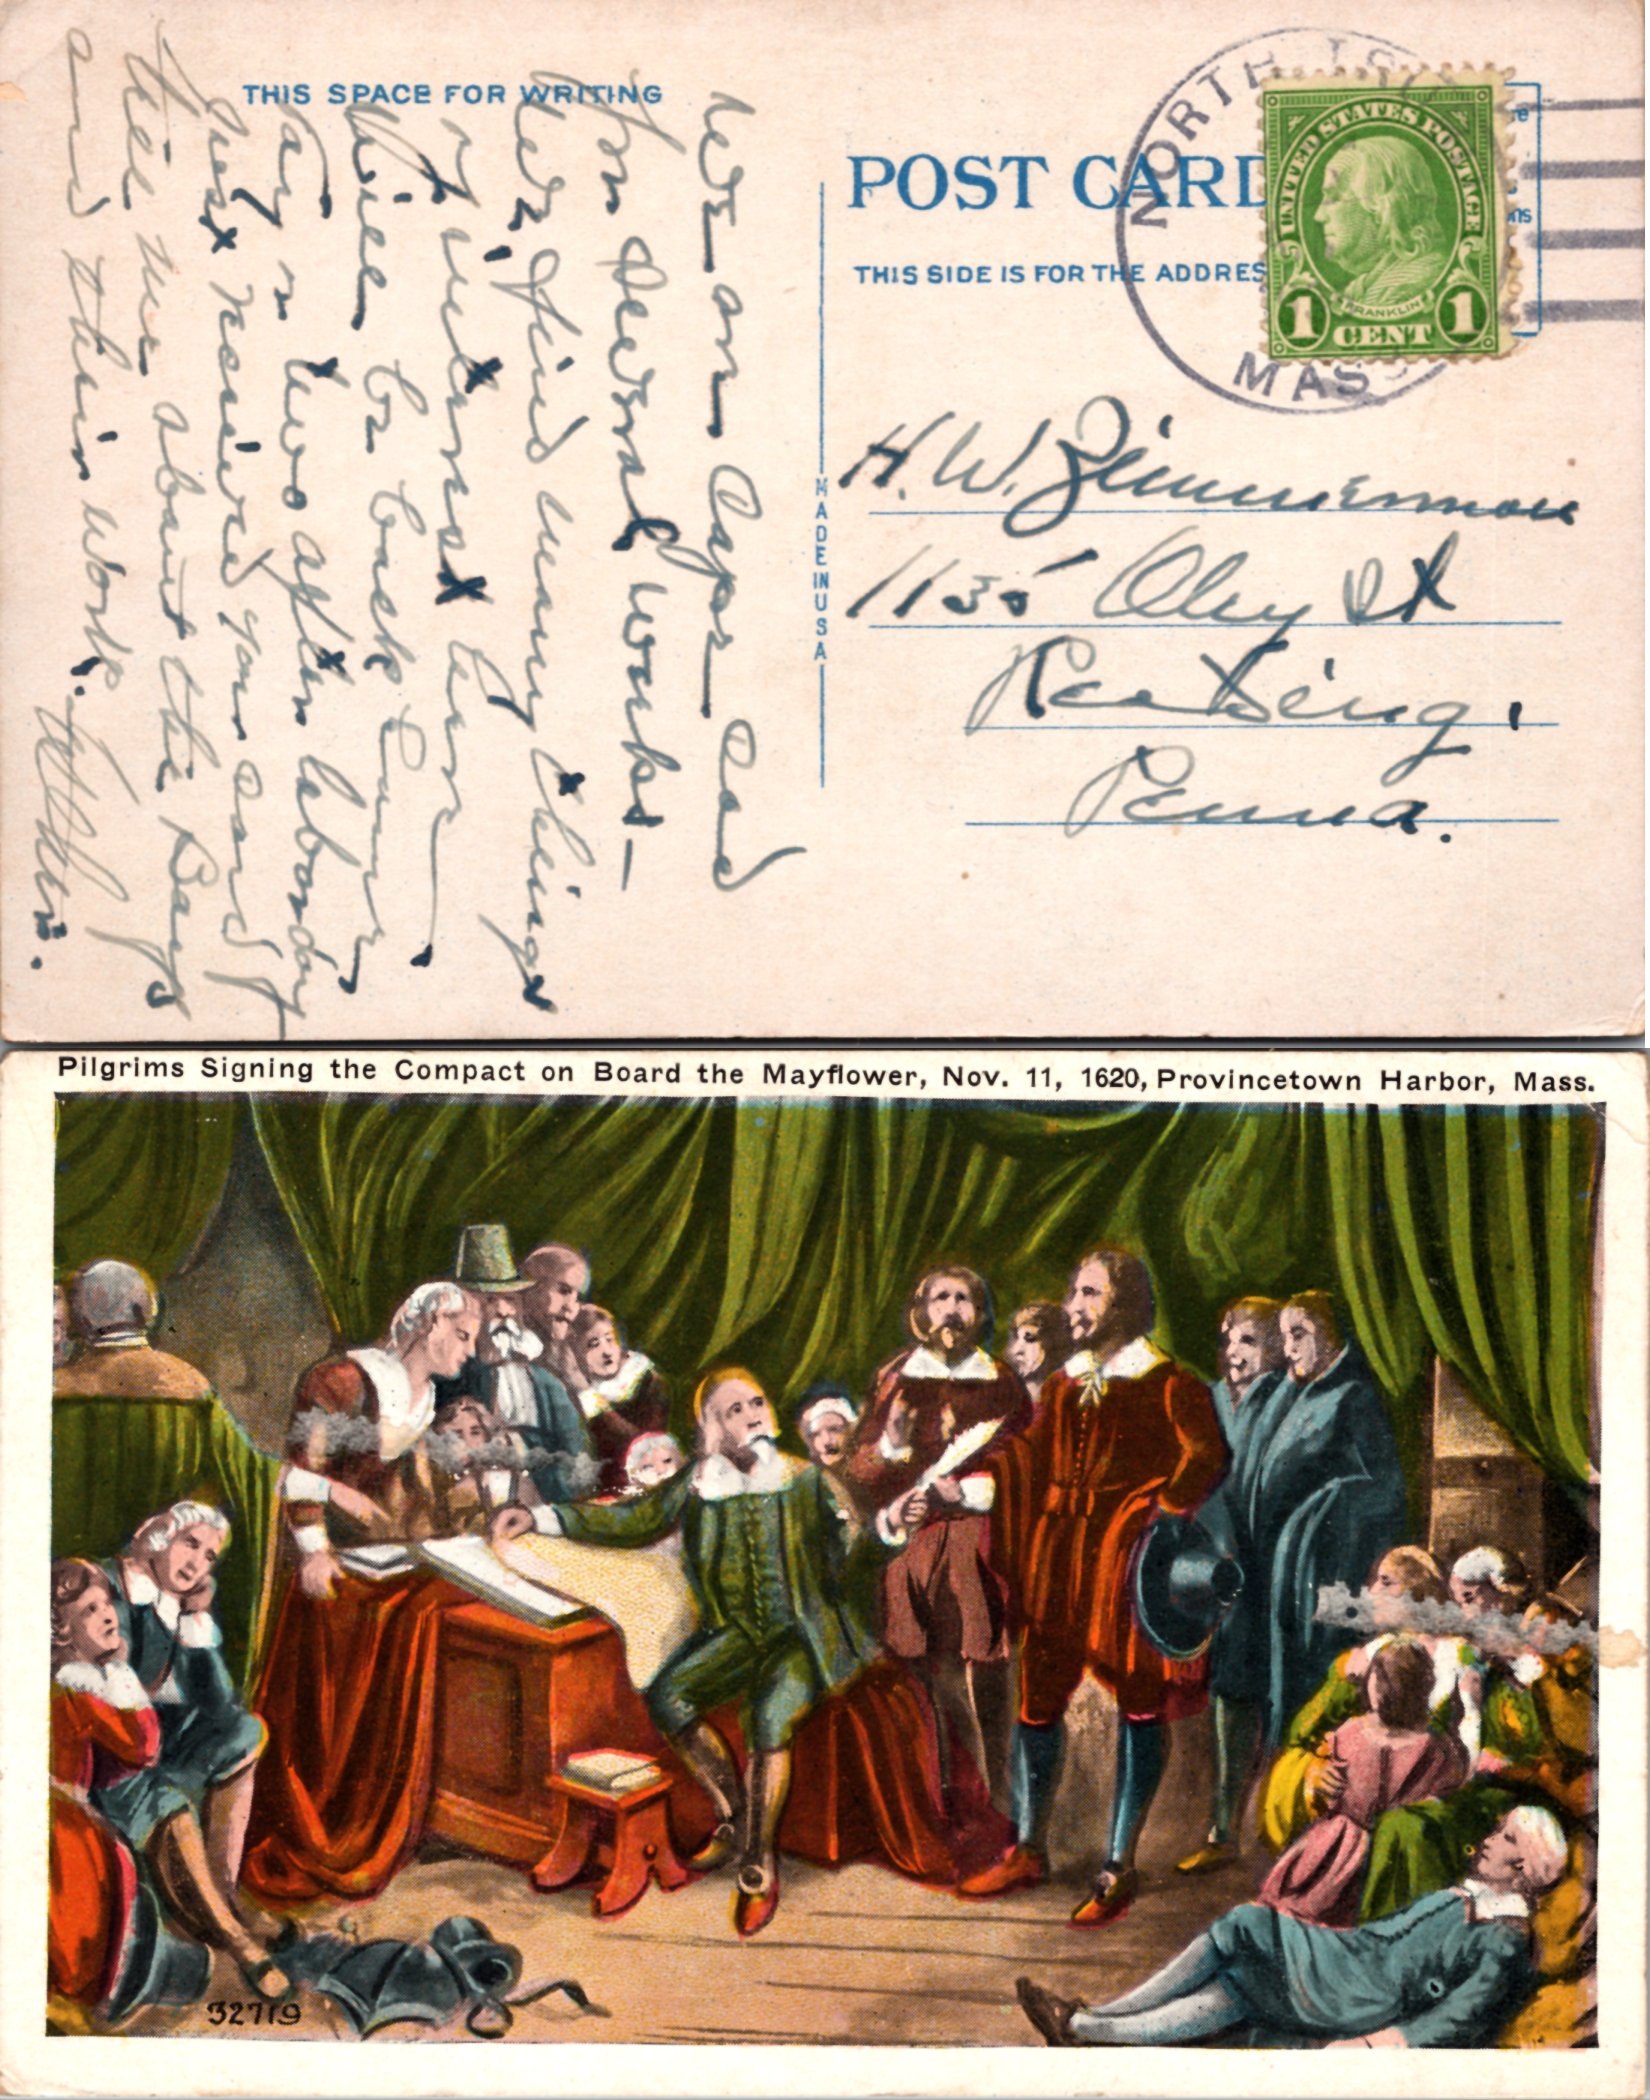 THIS SPACE FOR WRITING
Were on Cape Cod
for several weeks —
We find many things
of interest here.
Will be back Some
day or two after labor day
Just received your card
tell me about the Boys
and their work.
POST CARD
THIS SIDE IS FOR THE ADDRES
MADE IN USA
NORTH
MASS
UNITED STATES POSTAGE
FRANKLIN
1 CENT 1
H. W. Zimmerman
1135 Oley St
Reading,
Penna.
Pilgrims Signing the Compact on Board the Mayflower, Nov. 11, 1620, Provincetown Harbor, Mass.
32719